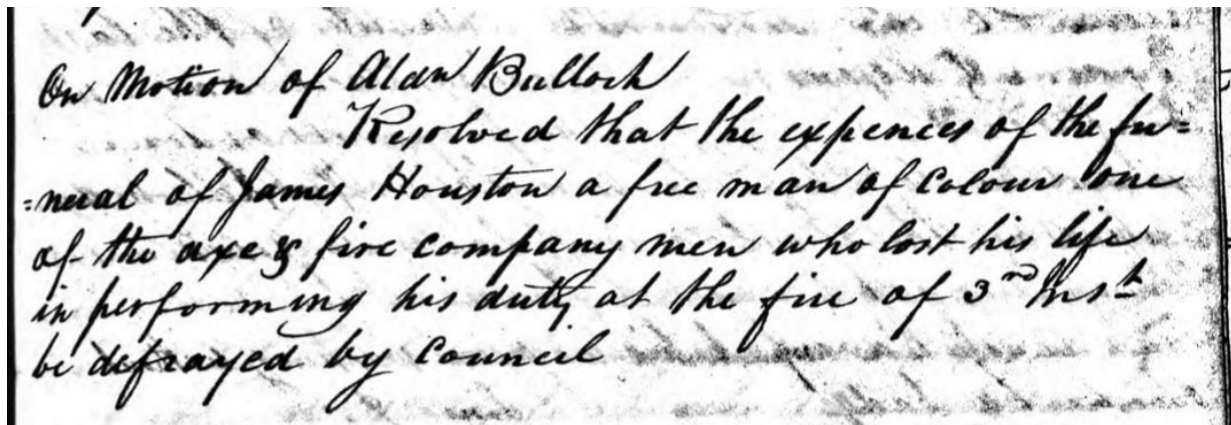 On Motion of Aldn Bulloch
Resolved that the expences of the fu=
=neral of James Houston a free man of Colour one
of the axe & fire company men who lost his life
in performing his duty at the fire of 3rd Inst
be defrayed by Council